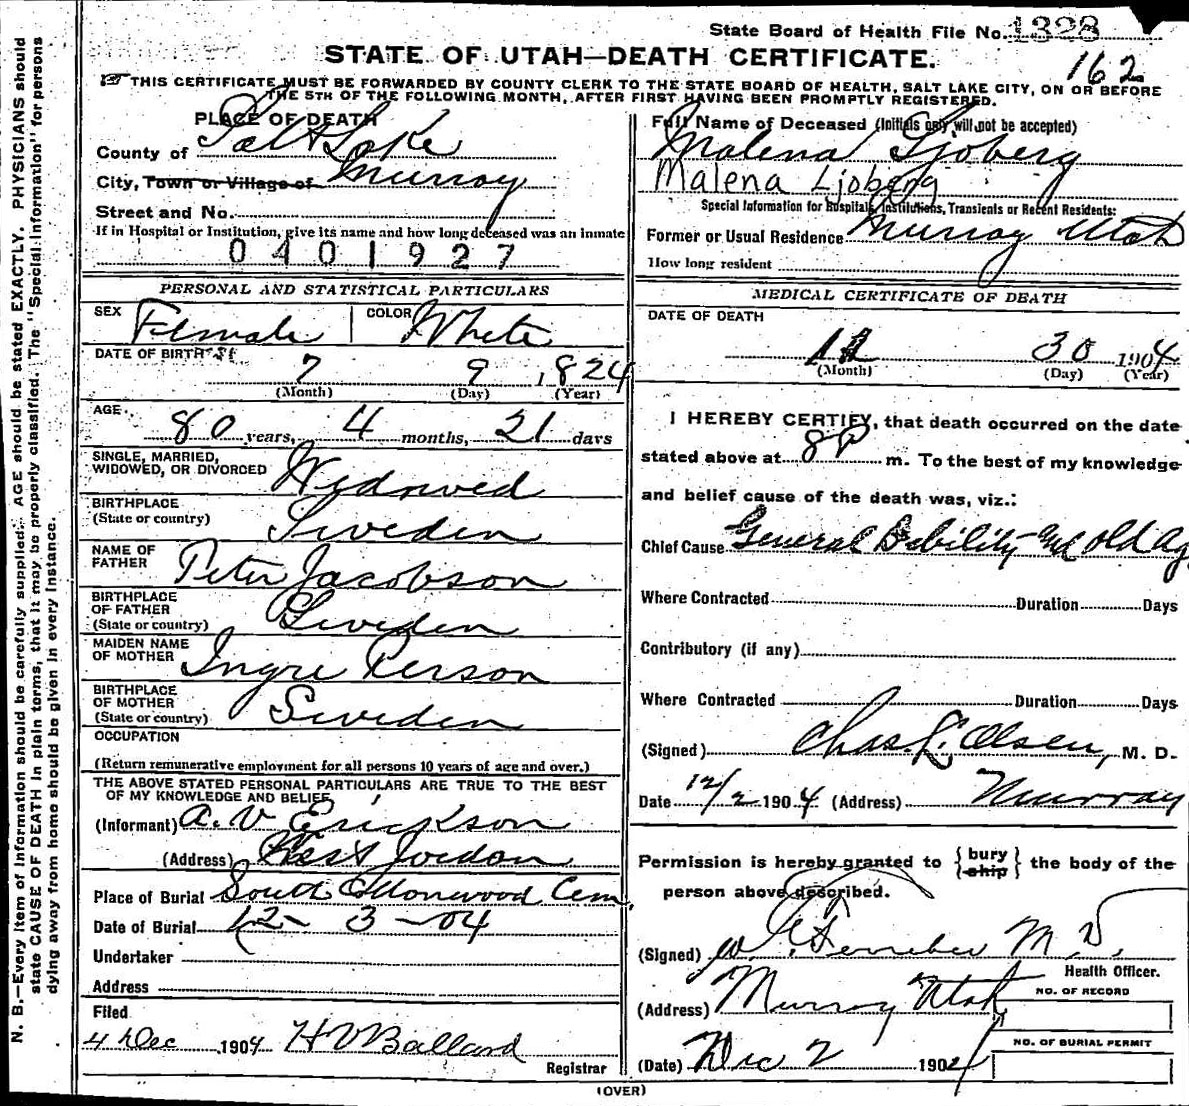 State Board of Health File No. 1328
STATE OF UTAH—DEATH CERTIFICATE.
162
THIS CERTIFICATE MUST BE FORWARDED BY COUNTY CLERK TO THE STATE BOARD OF HEALTH, SALT LAKE CITY, ON OR BEFORE
THE 5TH OF THE FOLLOWING MONTH, AFTER FIRST HAVING BEEN PROMPTLY REGISTERED.
PLACE OF DEATH
County of Salt Lake
City, Town or Village of Murray
Street and No.
If in Hospital or Institution, give its name and how long deceased was an inmate
0401927
PERSONAL AND STATISTICAL PARTICULARS
SEX Female COLOR White
DATE OF BIRTH
7 9 1824
(Month) (Day) (Year)
AGE
80 years, 4 months, 21 days
SINGLE, MARRIED,
WIDOWED, OR DIVORCED Widowed
BIRTHPLACE
(State or country) Sweden
NAME OF
FATHER Peter Jacobson
BIRTHPLACE
OF FATHER
(State or country) Sweden
MAIDEN NAME
OF MOTHER Ingre Person
BIRTHPLACE
OF MOTHER
(State or country) Sweden
OCCUPATION
(Return remunerative employment for all persons 10 years of age and over.)
THE ABOVE STATED PERSONAL PARTICULARS ARE TRUE TO THE BEST
OF MY KNOWLEDGE AND BELIEF
(Informant) A. V Erickson
(Address) West Jordan
Place of Burial South Cottonwood Cem.
Date of Burial 12 - 3 - 04
Undertaker
Address
Filed
4 Dec 1904 H V Ballard
Registrar
Full Name of Deceased (Initials only will not be accepted)
Malena Sjoberg
Malena Ljoberg
Special Information for Hospitals, Institutions, Transients or Recent Residents:
Former or Usual Residence Murray Utah
How long resident
MEDICAL CERTIFICATE OF DEATH
DATE OF DEATH
11 30 1904
(Month) (Day) (Year)
I HEREBY CERTIFY, that death occurred on the date
stated above at 8 P m. To the best of my knowledge
and belief cause of the death was, viz.:
Chief Cause General Debility and Old Ag
Where Contracted Duration Days
Contributory (if any)
Where Contracted Duration Days
(Signed) Chas. L. Olsen, M. D.
Date 12/2 1904 (Address) Murray
Permission is hereby granted to {bury
ship} the body of the
person above described.
(Signed) M. D.
Health Officer.
(Address) Murray Utah
NO. OF RECORD
NO. OF BURIAL PERMIT
(Date) Dec 2 1904
(OVER)
N. B.—Every item of information should be carefully supplied. AGE should be stated EXACTLY. PHYSICIANS should
state CAUSE OF DEATH in plain terms, that it may be properly classified. The "Special Information" for persons
dying away from home should be given in every instance.